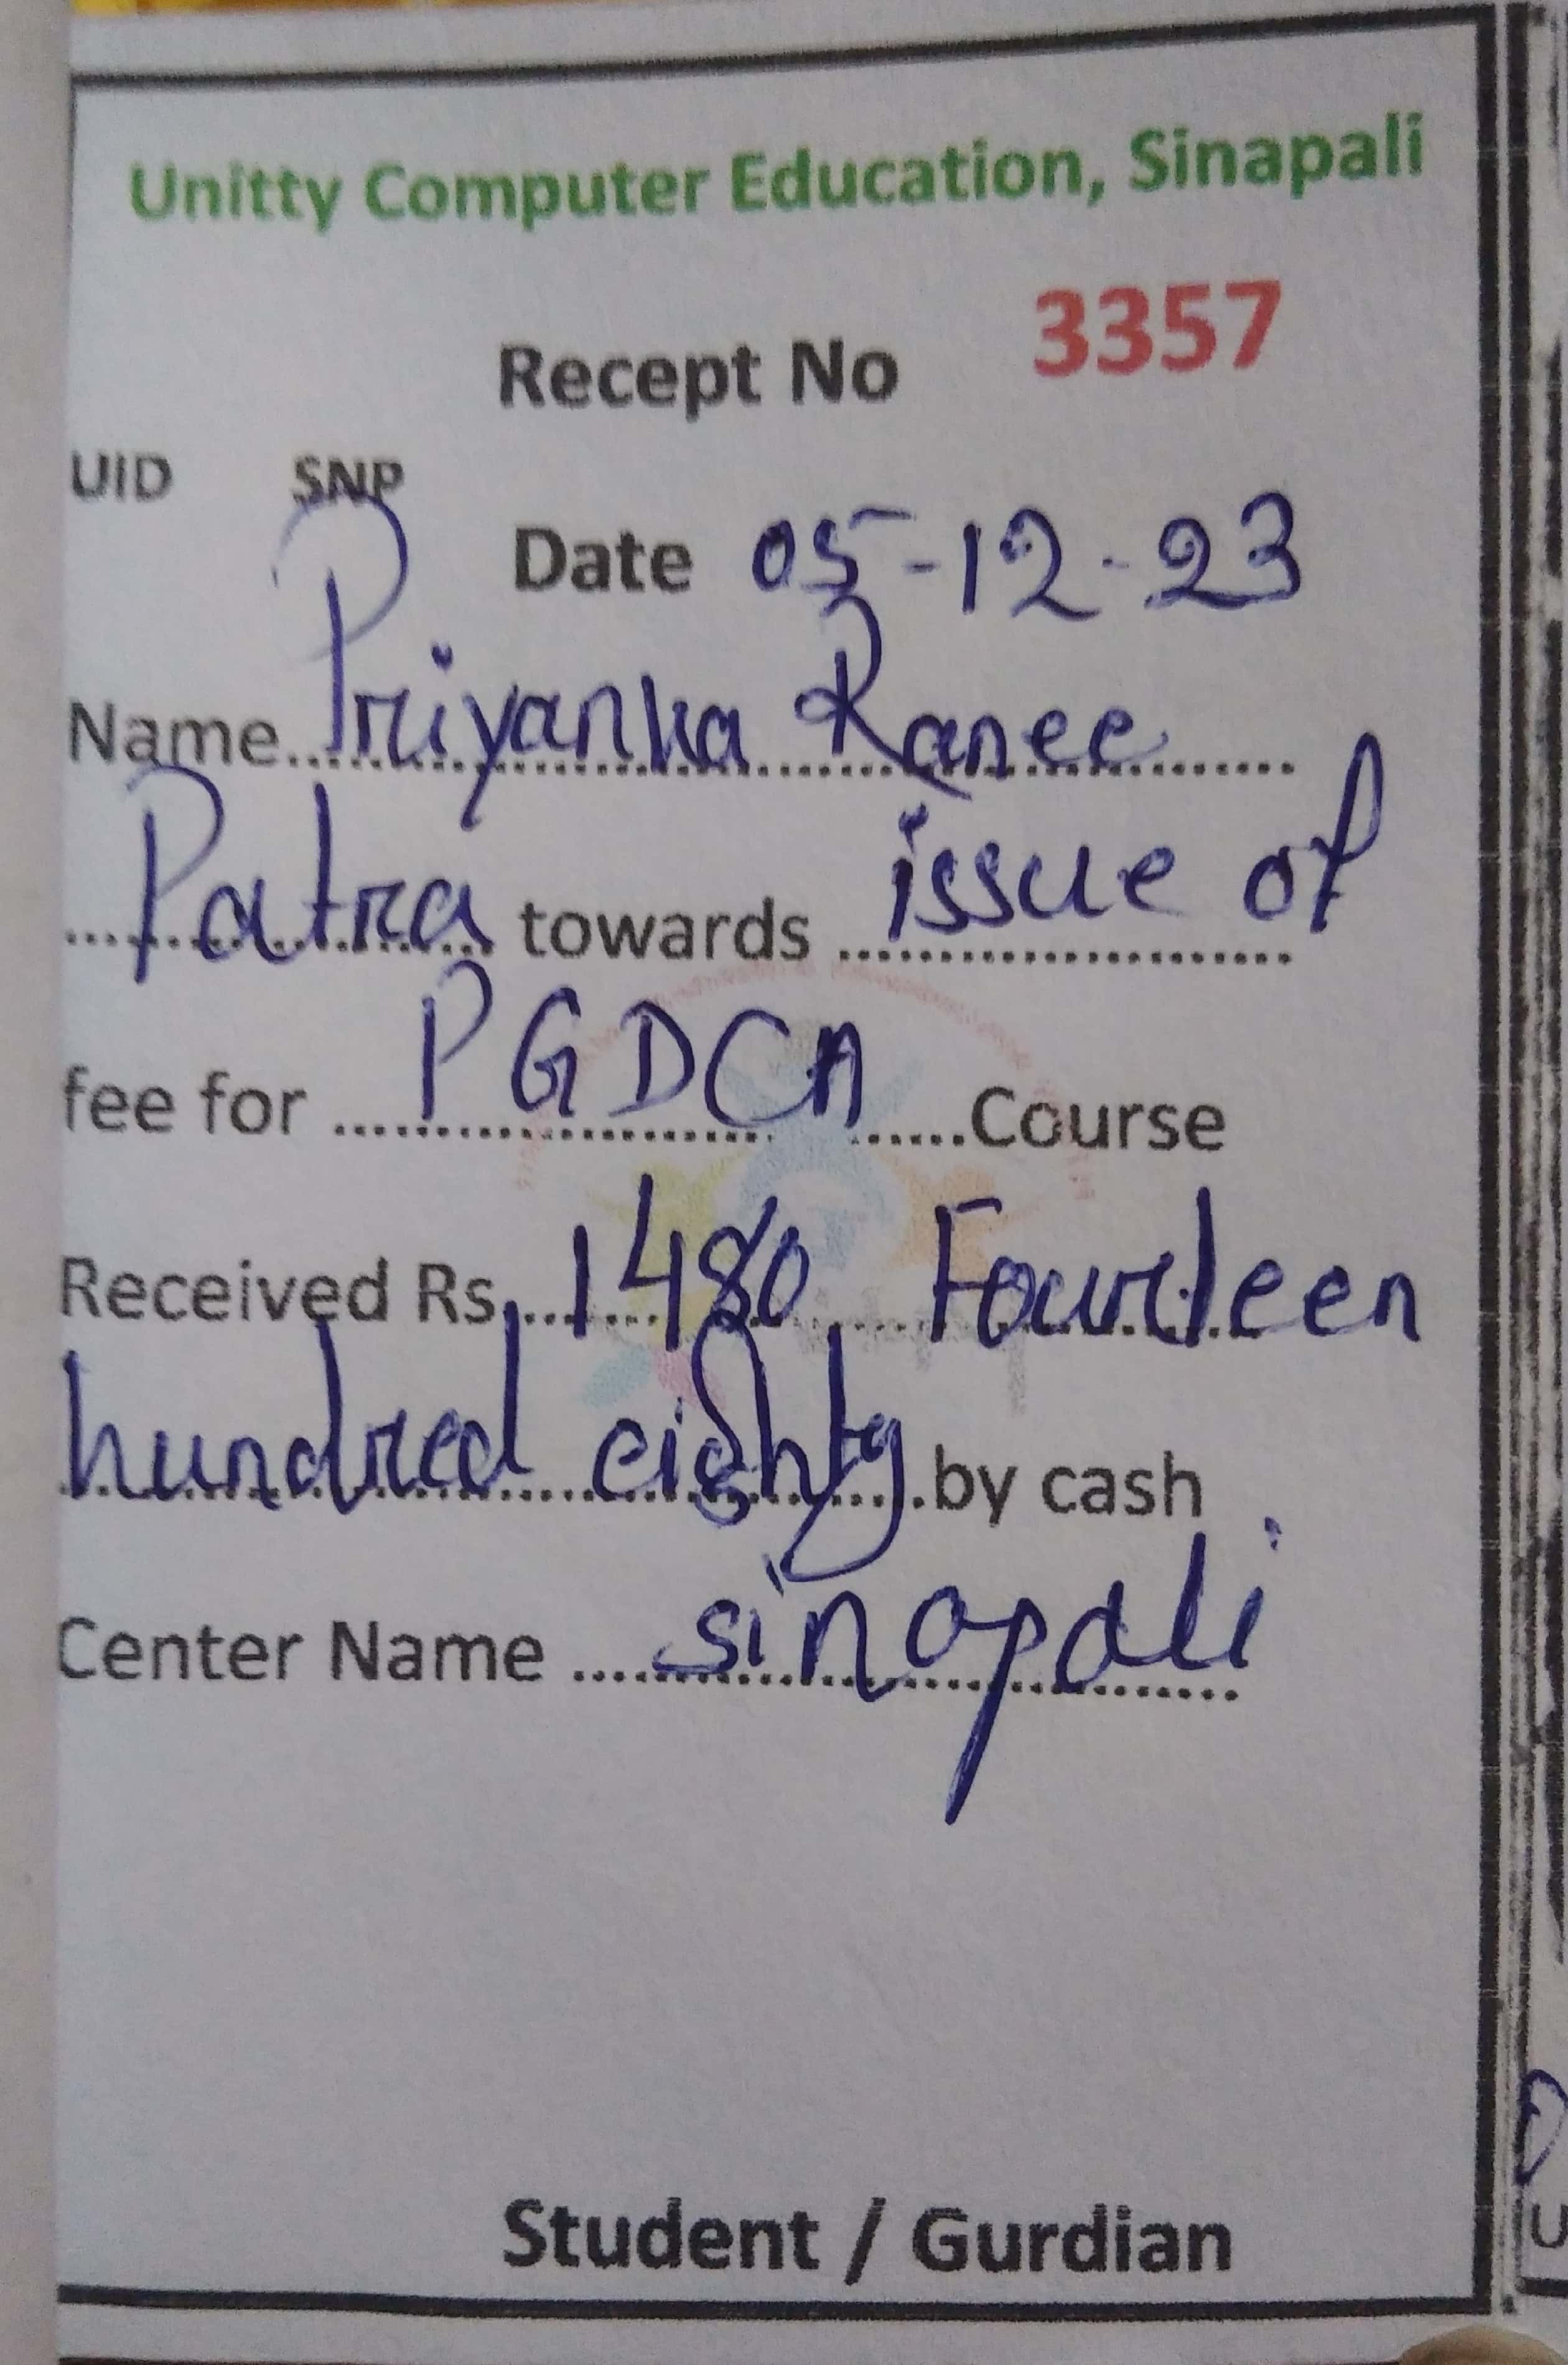 Unitty Computer Education, Sinapali
Recept No 3357
UID SNP
Date 05-12-23
Name Priyanka Ranee
Patra towards issue of
fee for PGDCA Course
Received Rs 1480 Fourteen
hundred eighty by cash
Center Name sinapali
Student / Gurdian